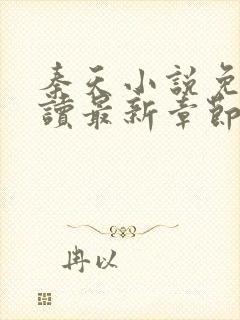 秦天小說免
讀最新章節
冉以